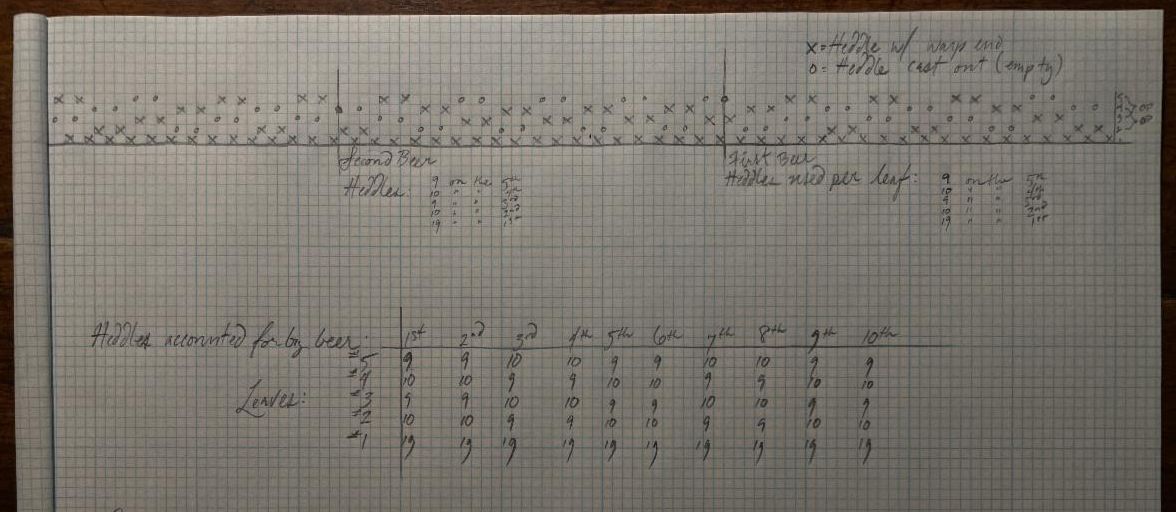 x = Heddle w/ warp end
o = Heddle cast out (empty)
Second Beer
First Beer
Heddles:
9 on the 5th
10 " " 4th
9 " " 3rd
10 " " 2nd
19 " " 1st
Heddles used per leaf:
9 on the 5th
10 " " 4th
9 " " 3rd
10 " " 2nd
19 " " 1st
Heddles accounted for by beer: 1st 2nd 3rd 4th 5th 6th 7th 8th 9th 10th
#5 9 9 10 10 9 9 10 10 9 9
#4 10 10 9 9 10 10 9 9 10 10
Leaves: #3 9 9 10 10 9 9 10 10 9 9
#2 10 10 9 9 10 10 9 9 10 10
#1 19 19 19 19 19 19 19 19 19 19